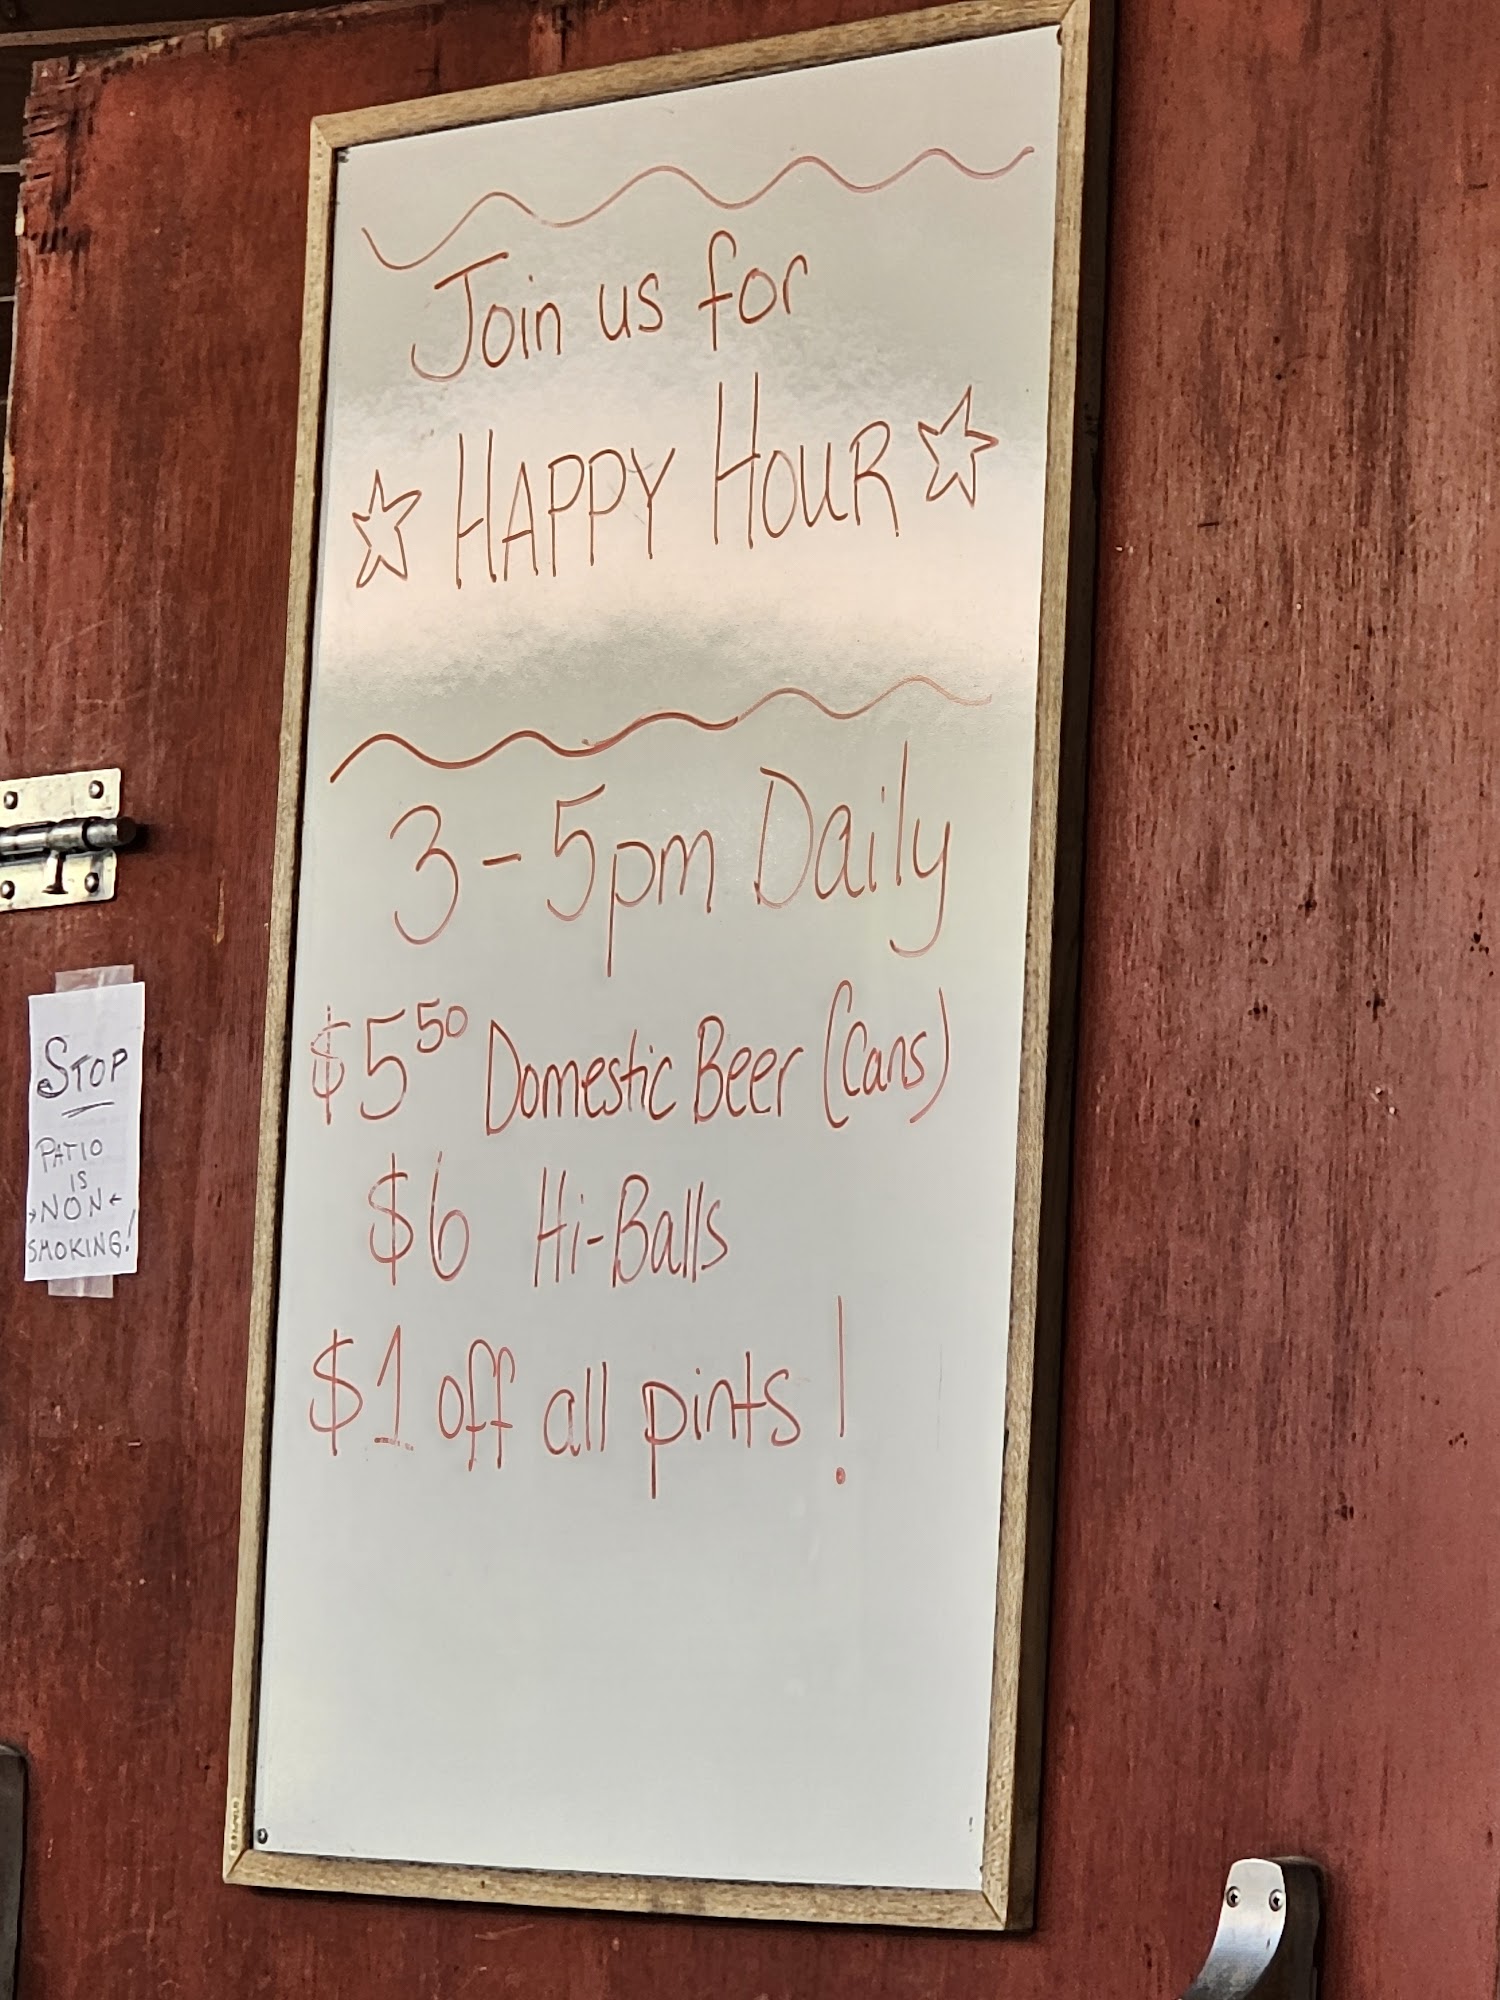 Join us for
HAPPY HOUR
3-5pm Daily
$5⁵⁰ Domestic Beer (Cans)
$6 Hi-Balls
$1 off all pints!
STOP
PATIO
IS
→NON←
SMOKING!